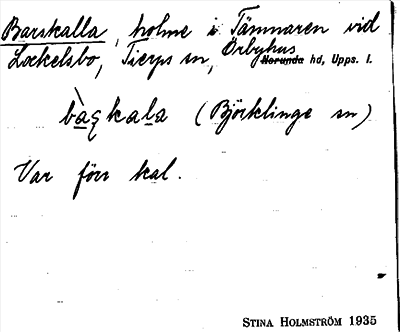 Barskalla, holme i Tämnaren vid
Lockelsbo, Tierps sn, Örbyhus Norunda hd, Upps. l.
bàʂkala (Björklinge sn)
Var förr kal.
STINA HOLMSTRÖM 1935